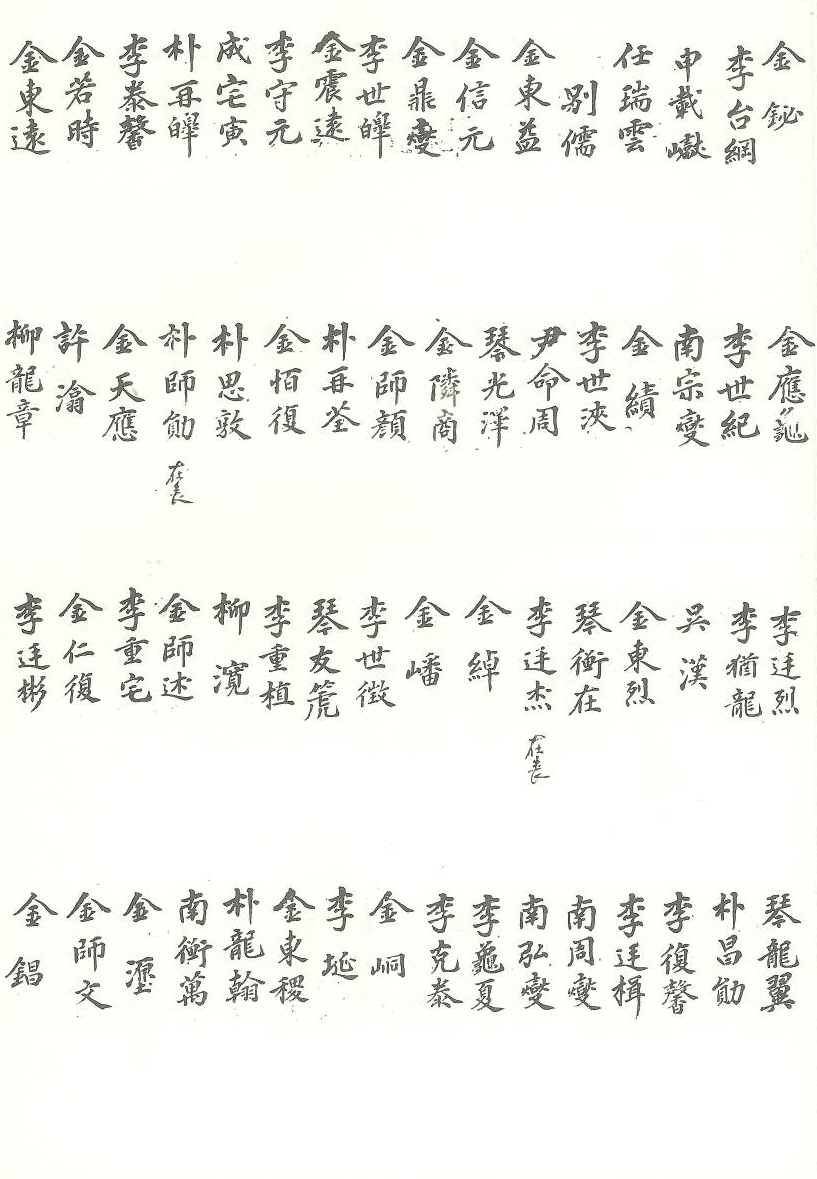 金 鉍
李台綱
申載巘
任瑞雲
別儒
金東益
金信元
金鼎燮
李世皥
金震遠
李守元
成宅寅
朴再皥
李泰馨
金若時
金東遠
金應龜
李世紀
南宗燮
金 績
李世浹
尹命周
琴光澤
金隣商
金師顔
朴再荃
金恒復
朴思敦
朴師勛 在喪
金天應
許 滃
柳龍章
李廷烈
李猶龍
吳 漢
金東烈
琴衡在
李廷杰 在喪
金 綽
金 嶓
李世徵
琴友箎
李重植
柳 濵
金師述
李重宅
金仁復
李廷彬
琴龍翼
朴昌勛
李復馨
李廷楫
南周燮
南弘燮
李龜夏
李克泰
金 峒
李 埏
金東稷
朴龍翰
南衡萬
金 𤁧
金師文
金 錩